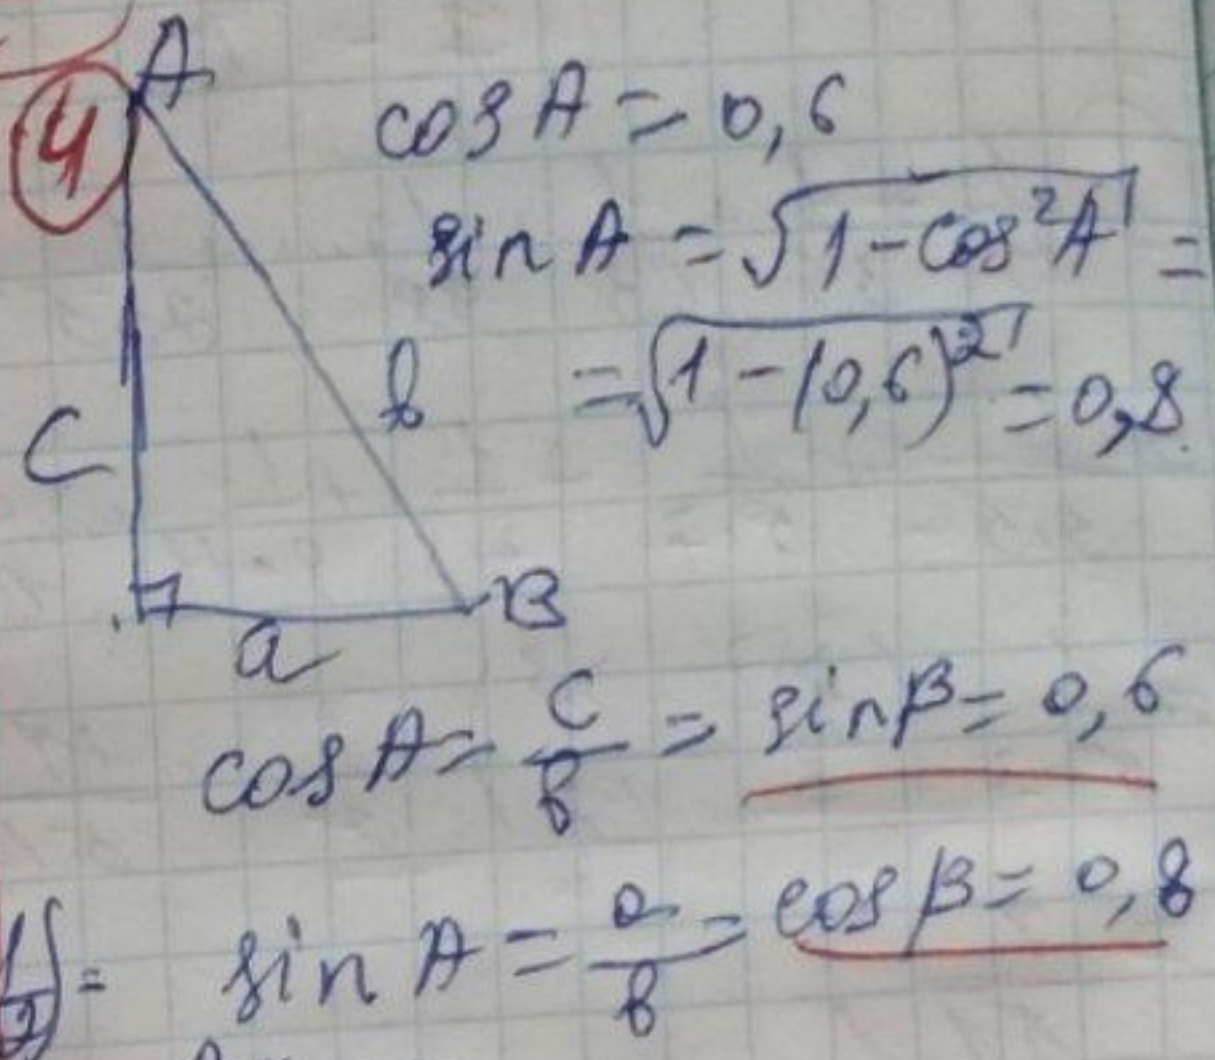 4
A
cos A = 0,6
sin A = √(1 - cos²A) =
= √(1 - (0,6)²) = 0,8
c
b
a
B
cos A = c/b = sin β = 0,6
sin A = a/b = cos β = 0,8